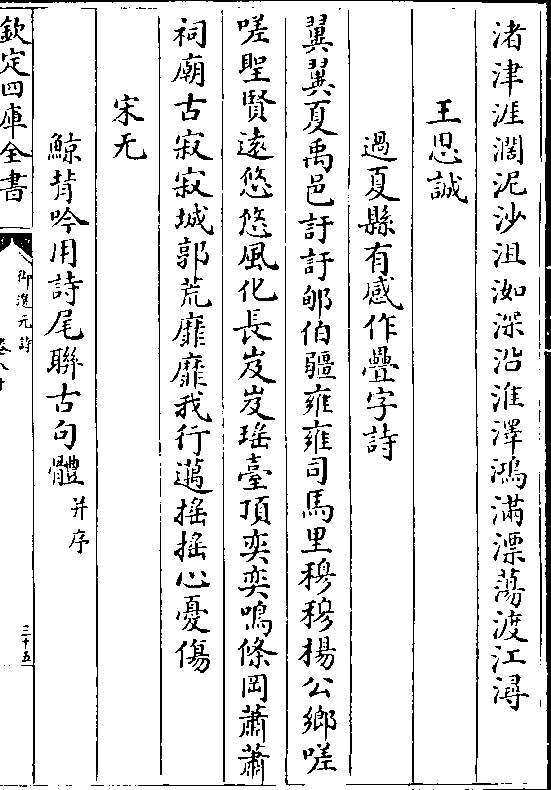 渚津涯濶泥沙沮洳深沿淮澤鴻滿漂蕩渡江潯
王思誠
過夏縣有感作疊字詩
翼翼夏禹邑訏訏郇伯疆雍雍司馬里穆穆揚公鄉嗟
嗟聖賢遠悠悠風化長岌岌瑤臺頂奕奕鳴條岡蕭蕭
祠廟古寂寂城郭荒靡靡我行邁搖搖心憂傷
宋无
鯨背吟用詩尾聯古句體并序
欽定四庫全書
御選元詩
卷八十
三十五